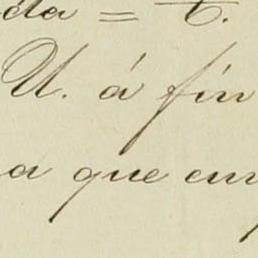 da = C.
U. á fin
a que em